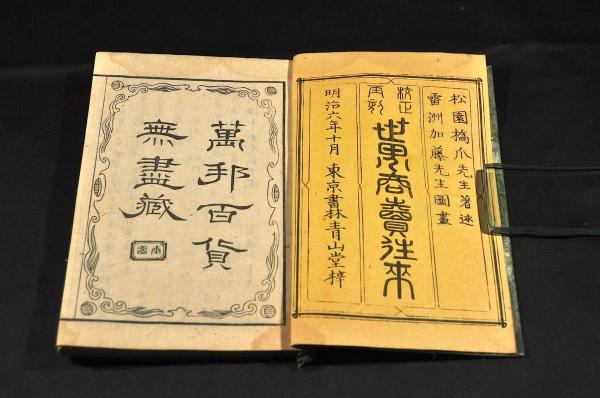 松園橋爪先生著述
雷洲加藤先生圖畫
校正
再刻
世界商賣往來
明治六年十月 東京書林青山堂梓
萬邦百貨
無盡藏